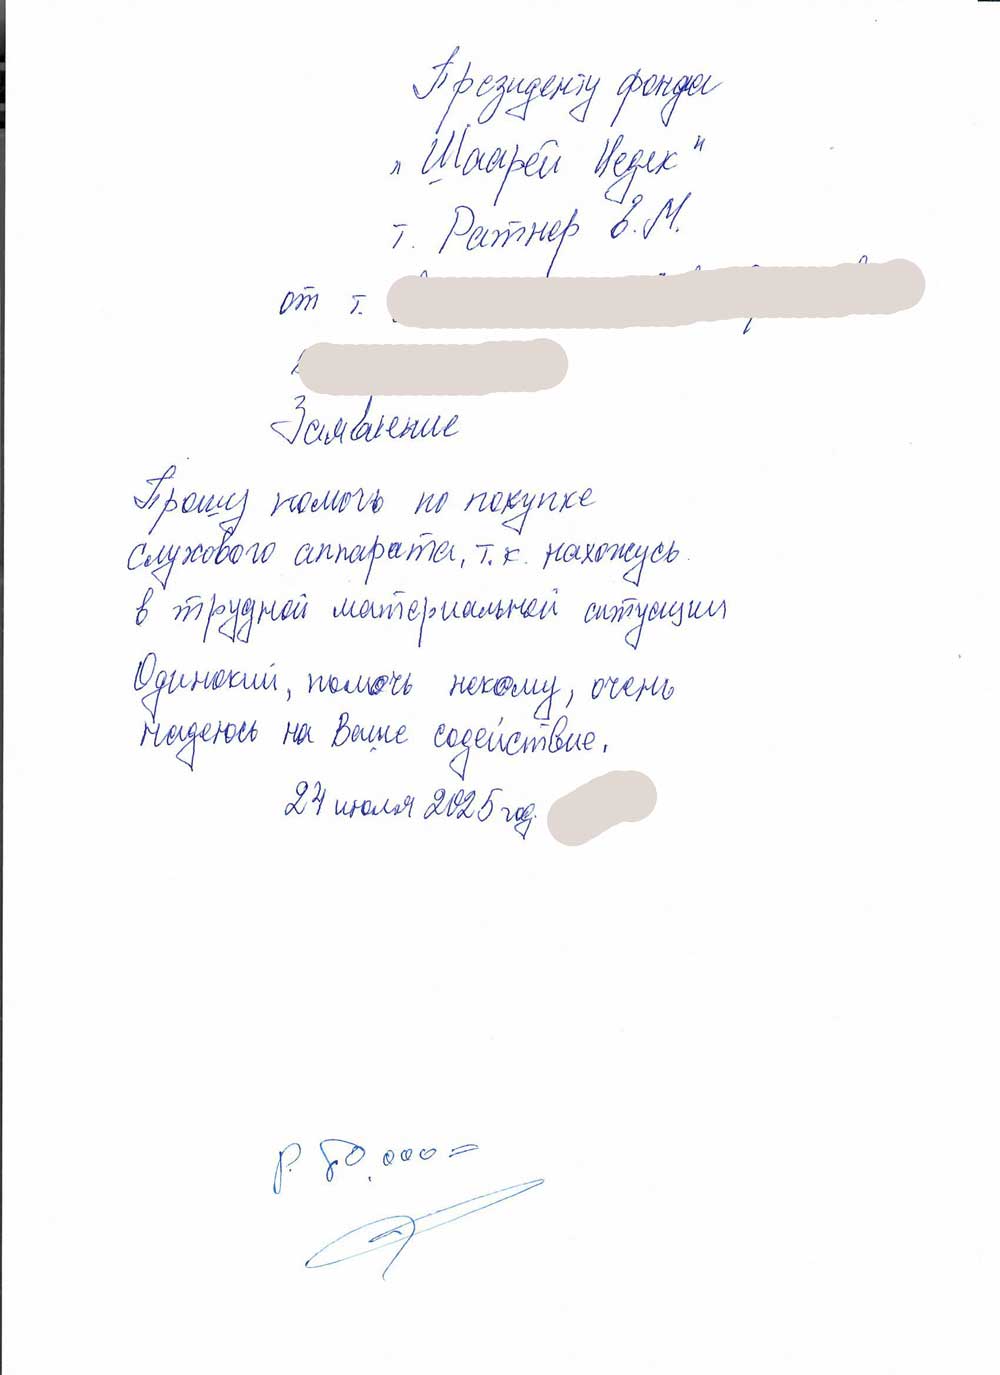 Президенту фонда
„Шаарей Цедек"
т. Ратнер В.М.
от т.
Заявление
Прошу помочь по покупке
слухового аппарата, т.к. нахожусь
в трудной материальной ситуации
Одинокий, помочь некому, очень
надеюсь на Ваше содействие.
24 июля 2025 год.
р. 80.000=